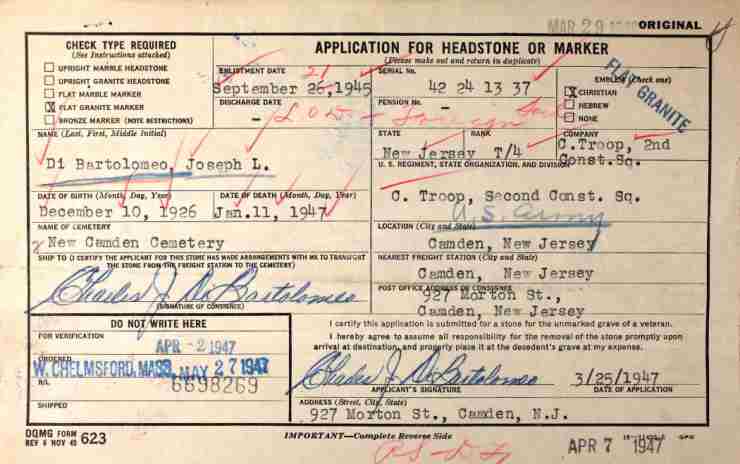 MAR 29
ORIGINAL
CHECK TYPE REQUIRED
(See Instructions attached)
UPRIGHT MARBLE HEADSTONE
UPRIGHT GRANITE HEADSTONE
FLAT MARBLE MARKER
X FLAT GRANITE MARKER
BRONZE MARKER (NOTE RESTRICTIONS)
APPLICATION FOR HEADSTONE OR MARKER
(Please make out and return in duplicate)
ENLISTMENT DATE
21
September 26, 1945
DISCHARGE DATE
-
SERIAL No.
42 24 13 37
PENSION No.
-
EMBLEM (Check one)
X CHRISTIAN
HEBREW
NONE
FLAT GRANITE
NAME (Last, First, Middle Initial)
Di Bartolomeo, Joseph L.
STATE
New Jersey
RANK
T/4
COMPANY
C.Troop, 2nd
Const.Sq.
U. S. REGIMENT, STATE ORGANIZATION, AND DIVISION
C. Troop, Second Const. Sq.
U.S. Army
DATE OF BIRTH (Month, Day, Year)
December 10, 1926
DATE OF DEATH (Month, Day, Year)
Jan.11, 1947
NAME OF CEMETERY
New Camden Cemetery
LOCATION (City and State)
Camden, New Jersey
SHIP TO (I CERTIFY THE APPLICANT FOR THIS STONE HAS MADE ARRANGEMENTS WITH ME TO TRANSPORT
THE STONE FROM THE FREIGHT STATION TO THE CEMETERY)
Charles J. Di Bartolomeo
(SIGNATURE OF CONSIGNEE)
NEAREST FREIGHT STATION (City and State)
Camden, New Jersey
POST OFFICE ADDRESS OF CONSIGNEE
927 Morton St.,
Camden, New Jersey
DO NOT WRITE HERE
FOR VERIFICATION
APR -2 1947
ORDERED
W. CHELMSFORD, MASS. MAY 27 1947
B/L
6698269
SHIPPED
I certify this application is submitted for a stone for the unmarked grave of a veteran.
I hereby agree to assume all responsibility for the removal of the stone promptly upon
arrival at destination, and properly place it at the decedent's grave at my expense.
Charles J. Di Bartolomeo
APPLICANT'S SIGNATURE
3/25/1947
DATE OF APPLICATION
ADDRESS (Street, City, State)
927 Morton St., Camden, N.J.
OQMG FORM
REV 6 NOV 45 623
IMPORTANT—Complete Reverse Side
APR 7 1947
GPO